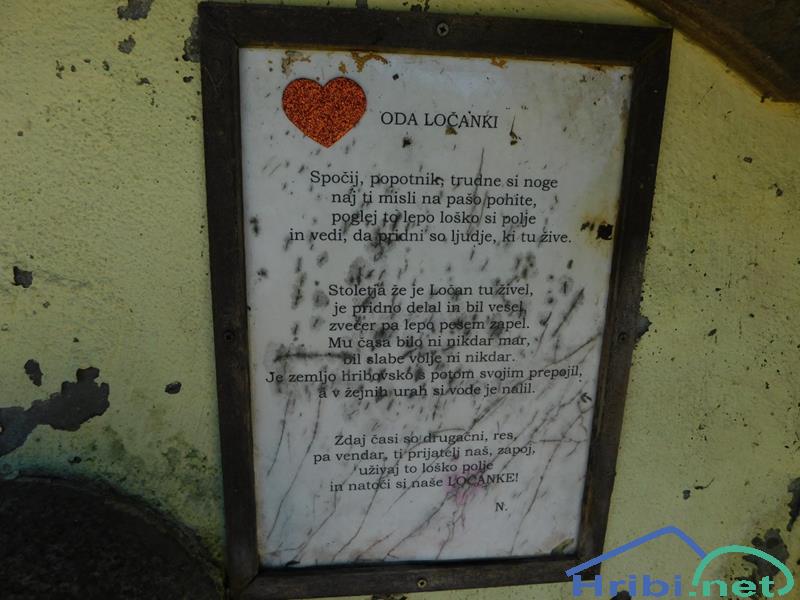 ODA LOČANKI
Spočij, popotnik, trudne si noge
naj ti misli na pašo pohite,
poglej to lepo loško si polje
in vedi, da pridni so ljudje, ki tu žive.
Stoletja že je Ločan tu živel,
je pridno delal in bil vesel,
zvečer pa lepo pesem zapel.
Mu časa bilo ni nikdar mar,
bil slabe volje ni nikdar.
Je zemljo hribovsko s potom svojim prepojil,
a v žejnih urah si vode je nalil.
Zdaj časi so drugačni, res,
pa vendar, ti prijatelj naš, zapoj,
uživaj to loško polje
in natoči si naše LOČANKE!
N.
Hribi.net